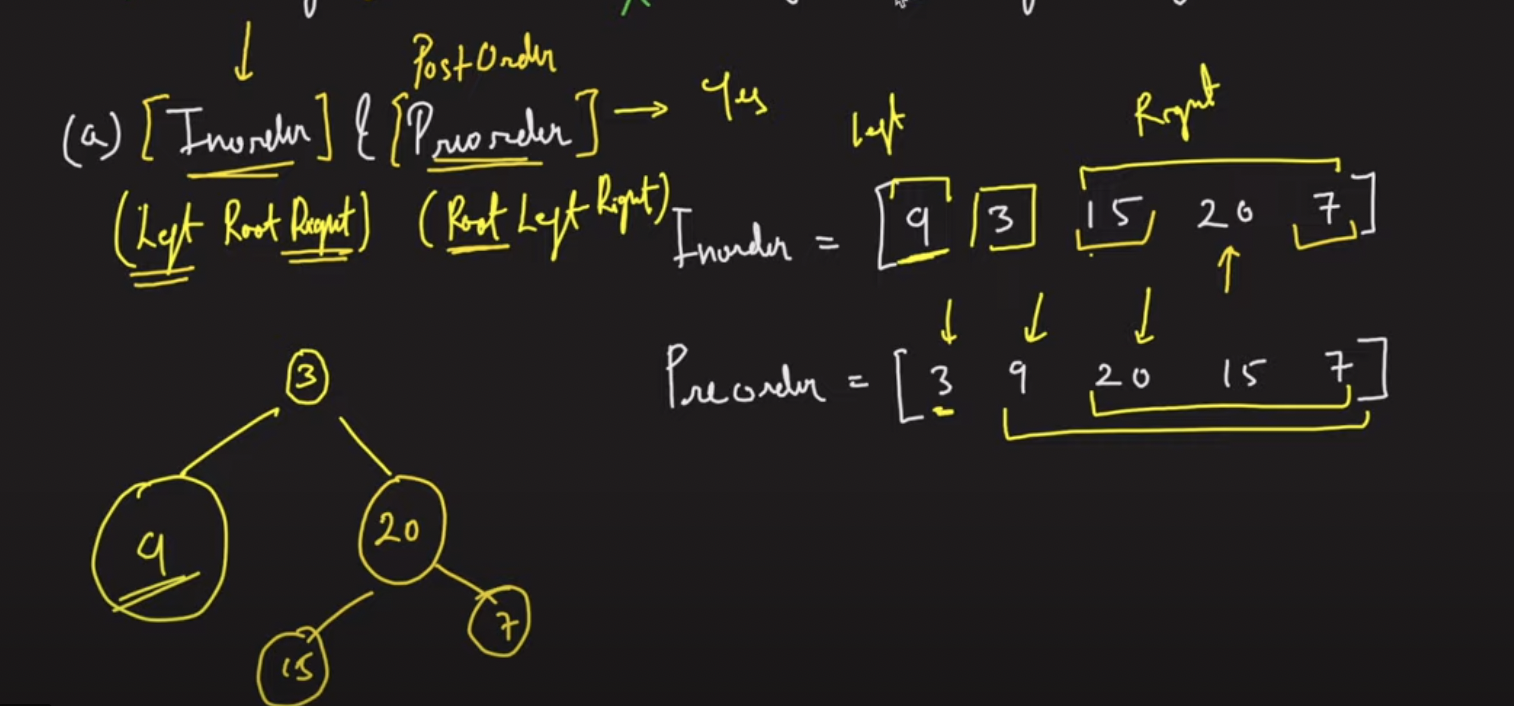 PostOrder
(a) [Inorder] & [Preorder] → Yes
(Left Root Right) (Root Left Right)
Left Right
Inorder = [9 3 15 20 7]
Preorder = [3 9 20 15 7]
3
9 20
15 7